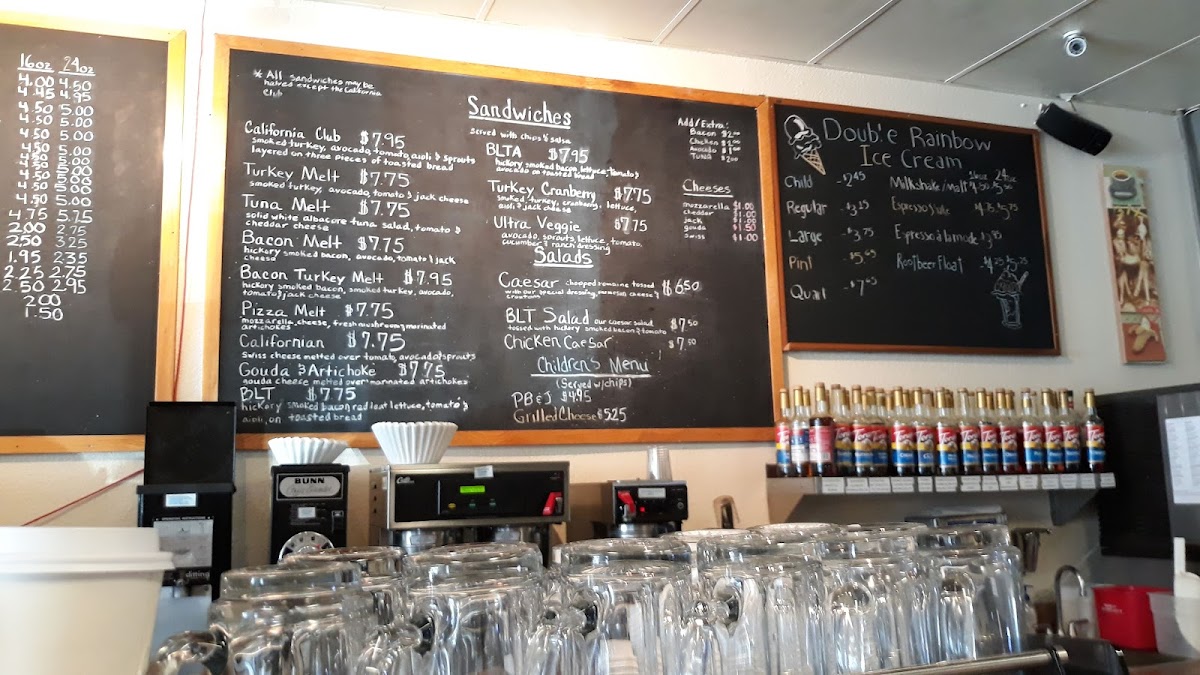 16oz 24oz
4.00 4.50
4.45 4.95
4.50 5.00
4.50 5.00
4.50 5.00
4.50 5.00
4.50 5.00
4.50 5.00
4.50 5.00
4.75 5.75
2.00 2.75
2.50 3.25
1.95 2.35
2.25 2.75
2.50 2.95
2.00
1.50
* All sandwiches may be
halved except the California
Club
Sandwiches
served with chips & salsa
California Club $7.95
smoked turkey, avocado, tomato, aioli & sprouts
layered on three pieces of toasted bread
Turkey Melt $7.75
smoked turkey, avocado, tomato & jack cheese
Tuna Melt $7.75
solid white albacore tuna salad, tomato &
cheddar cheese
Bacon Melt $7.75
hickory smoked bacon, avocado, tomato & jack
cheese
Bacon Turkey Melt $7.95
hickory smoked bacon, smoked turkey, avocado,
tomato & jack cheese
Pizza Melt $7.75
mozzarella cheese, fresh mushrooms, marinated
artichokes
Californian $7.75
Swiss cheese melted over tomato, avocado & sprouts
Gouda & Artichoke $7.75
gouda cheese melted over marinated artichokes
BLT $7.75
hickory smoked bacon, red leaf lettuce, tomato &
aioli, on toasted bread
BLTA $7.95
hickory smoked bacon, lettuce, tomato &
avocado on toasted bread
Turkey Cranberry $7.75
smoked turkey, cranberry, lettuce,
aioli & jack cheese
Ultra Veggie $7.75
avocado, sprouts, lettuce, tomato,
cucumber & ranch dressing
Salads
Caesar chopped romaine tossed $6.50
with our special dressing, parmesan cheese &
croutons
BLT Salad our caesar salad $7.50
tossed with hickory smoked bacon & tomato
Chicken Caesar $7.50
Children's Menu
(Served w/chips)
PB & J $4.95
Grilled Cheese $5.25
Add/Extra:
Bacon $2.00
Chicken $1.00
Avocado $1.00
Tuna $2.00
Cheeses
mozzarella $1.00
cheddar $1.00
jack $1.00
gouda $1.50
swiss $1.00
Doub'e Rainbow
Ice Cream
Child - $2.45
Regular - $3.15
Large - $3.75
Pint - $5.65
Quart - $7.65
16oz 24oz
Milkshake/Malt $4.50 $5.50
Espresso Shake $4.75 $5.75
Espresso à la mode $3.85
Rootbeer Float - $4.75 $5.75
BUNN
ditting
Torani